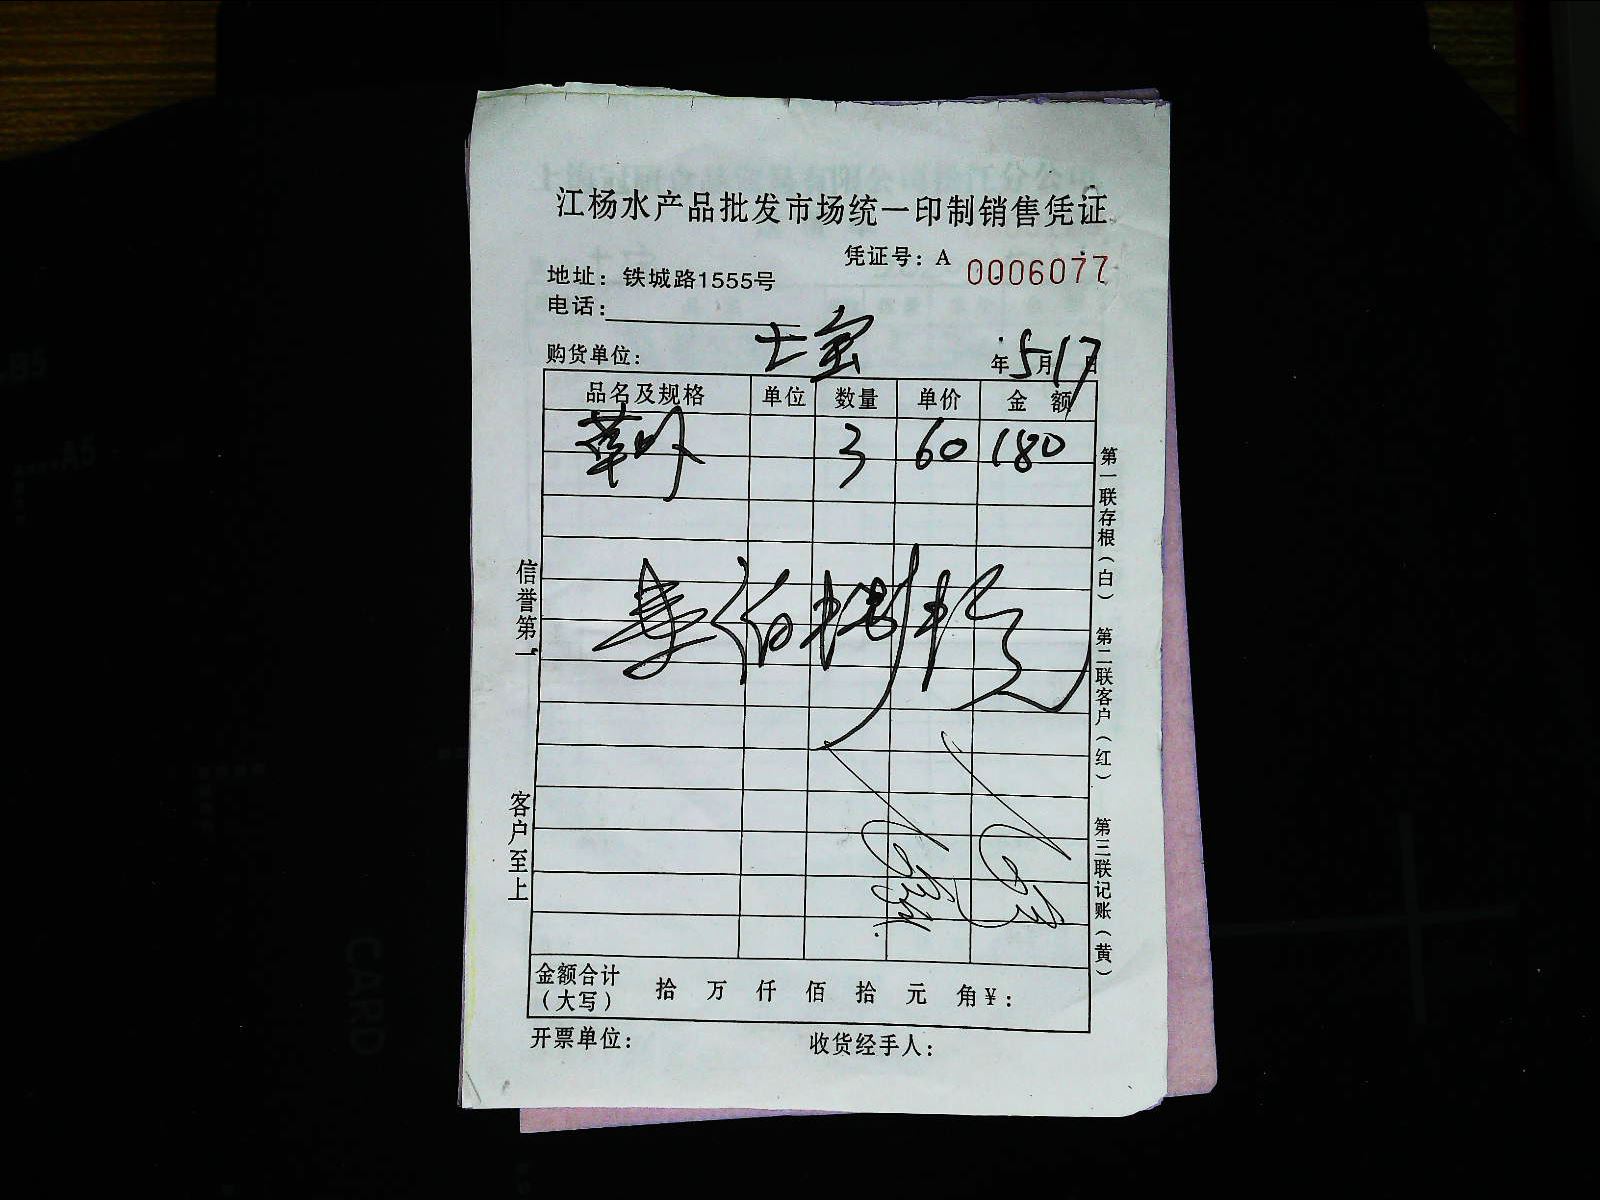 江杨水产品批发市场统一印制销售凭证
凭证号：A 0006077
地址：铁城路1555号
电话：
购货单位： 七宝 年5月17日
品名及规格 单位 数量 单价 金额
3 60 180
壹佰捌拾元
金额合计（大写） 拾 万 仟 佰 拾 元 角 ¥：
开票单位： 收货经手人：
信誉第一
客户至上
第一联存根（白） 第二联客户（红） 第三联记账（黄）